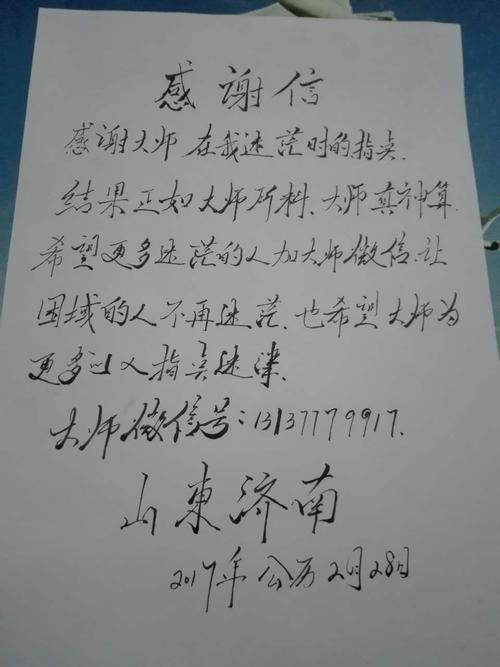 感谢信
感谢大师 在我迷茫时的指点.
结果正如大师所料、大师真神算.
希望更多迷茫的人加大师微信、让
困域的人不再迷茫、也希望大师为
更多人指点迷津.
大师微信号:13137779917.
山東济南
2017年公历2月28日